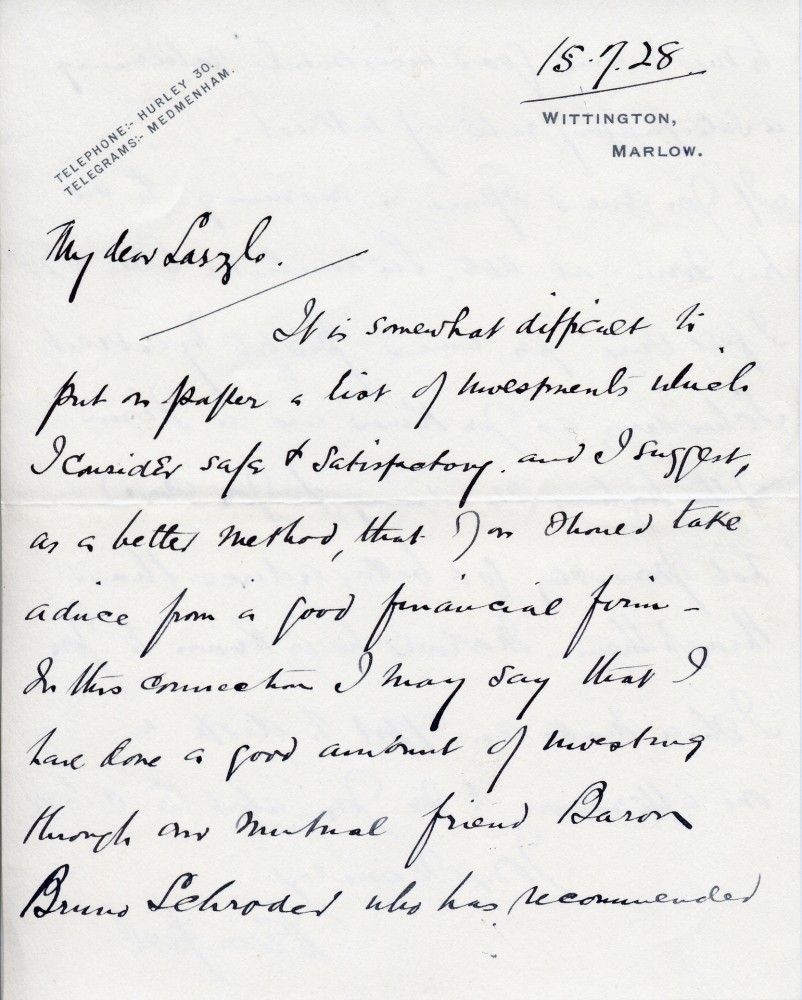 15.7.28
TELEPHONE:- HURLEY 30.
TELEGRAMS:- MEDMENHAM.
WITTINGTON,
MARLOW.
My dear Laszlo.
It is somewhat difficult to
put on paper a list of investments which
I consider safe & satisfactory. and I suggest,
as a better method, that you should take
advice from a good financial firm -
In this connection I may say that I
have done a good amount of investing
through our mutual friend Baron
Bruno Schroder who has recommended